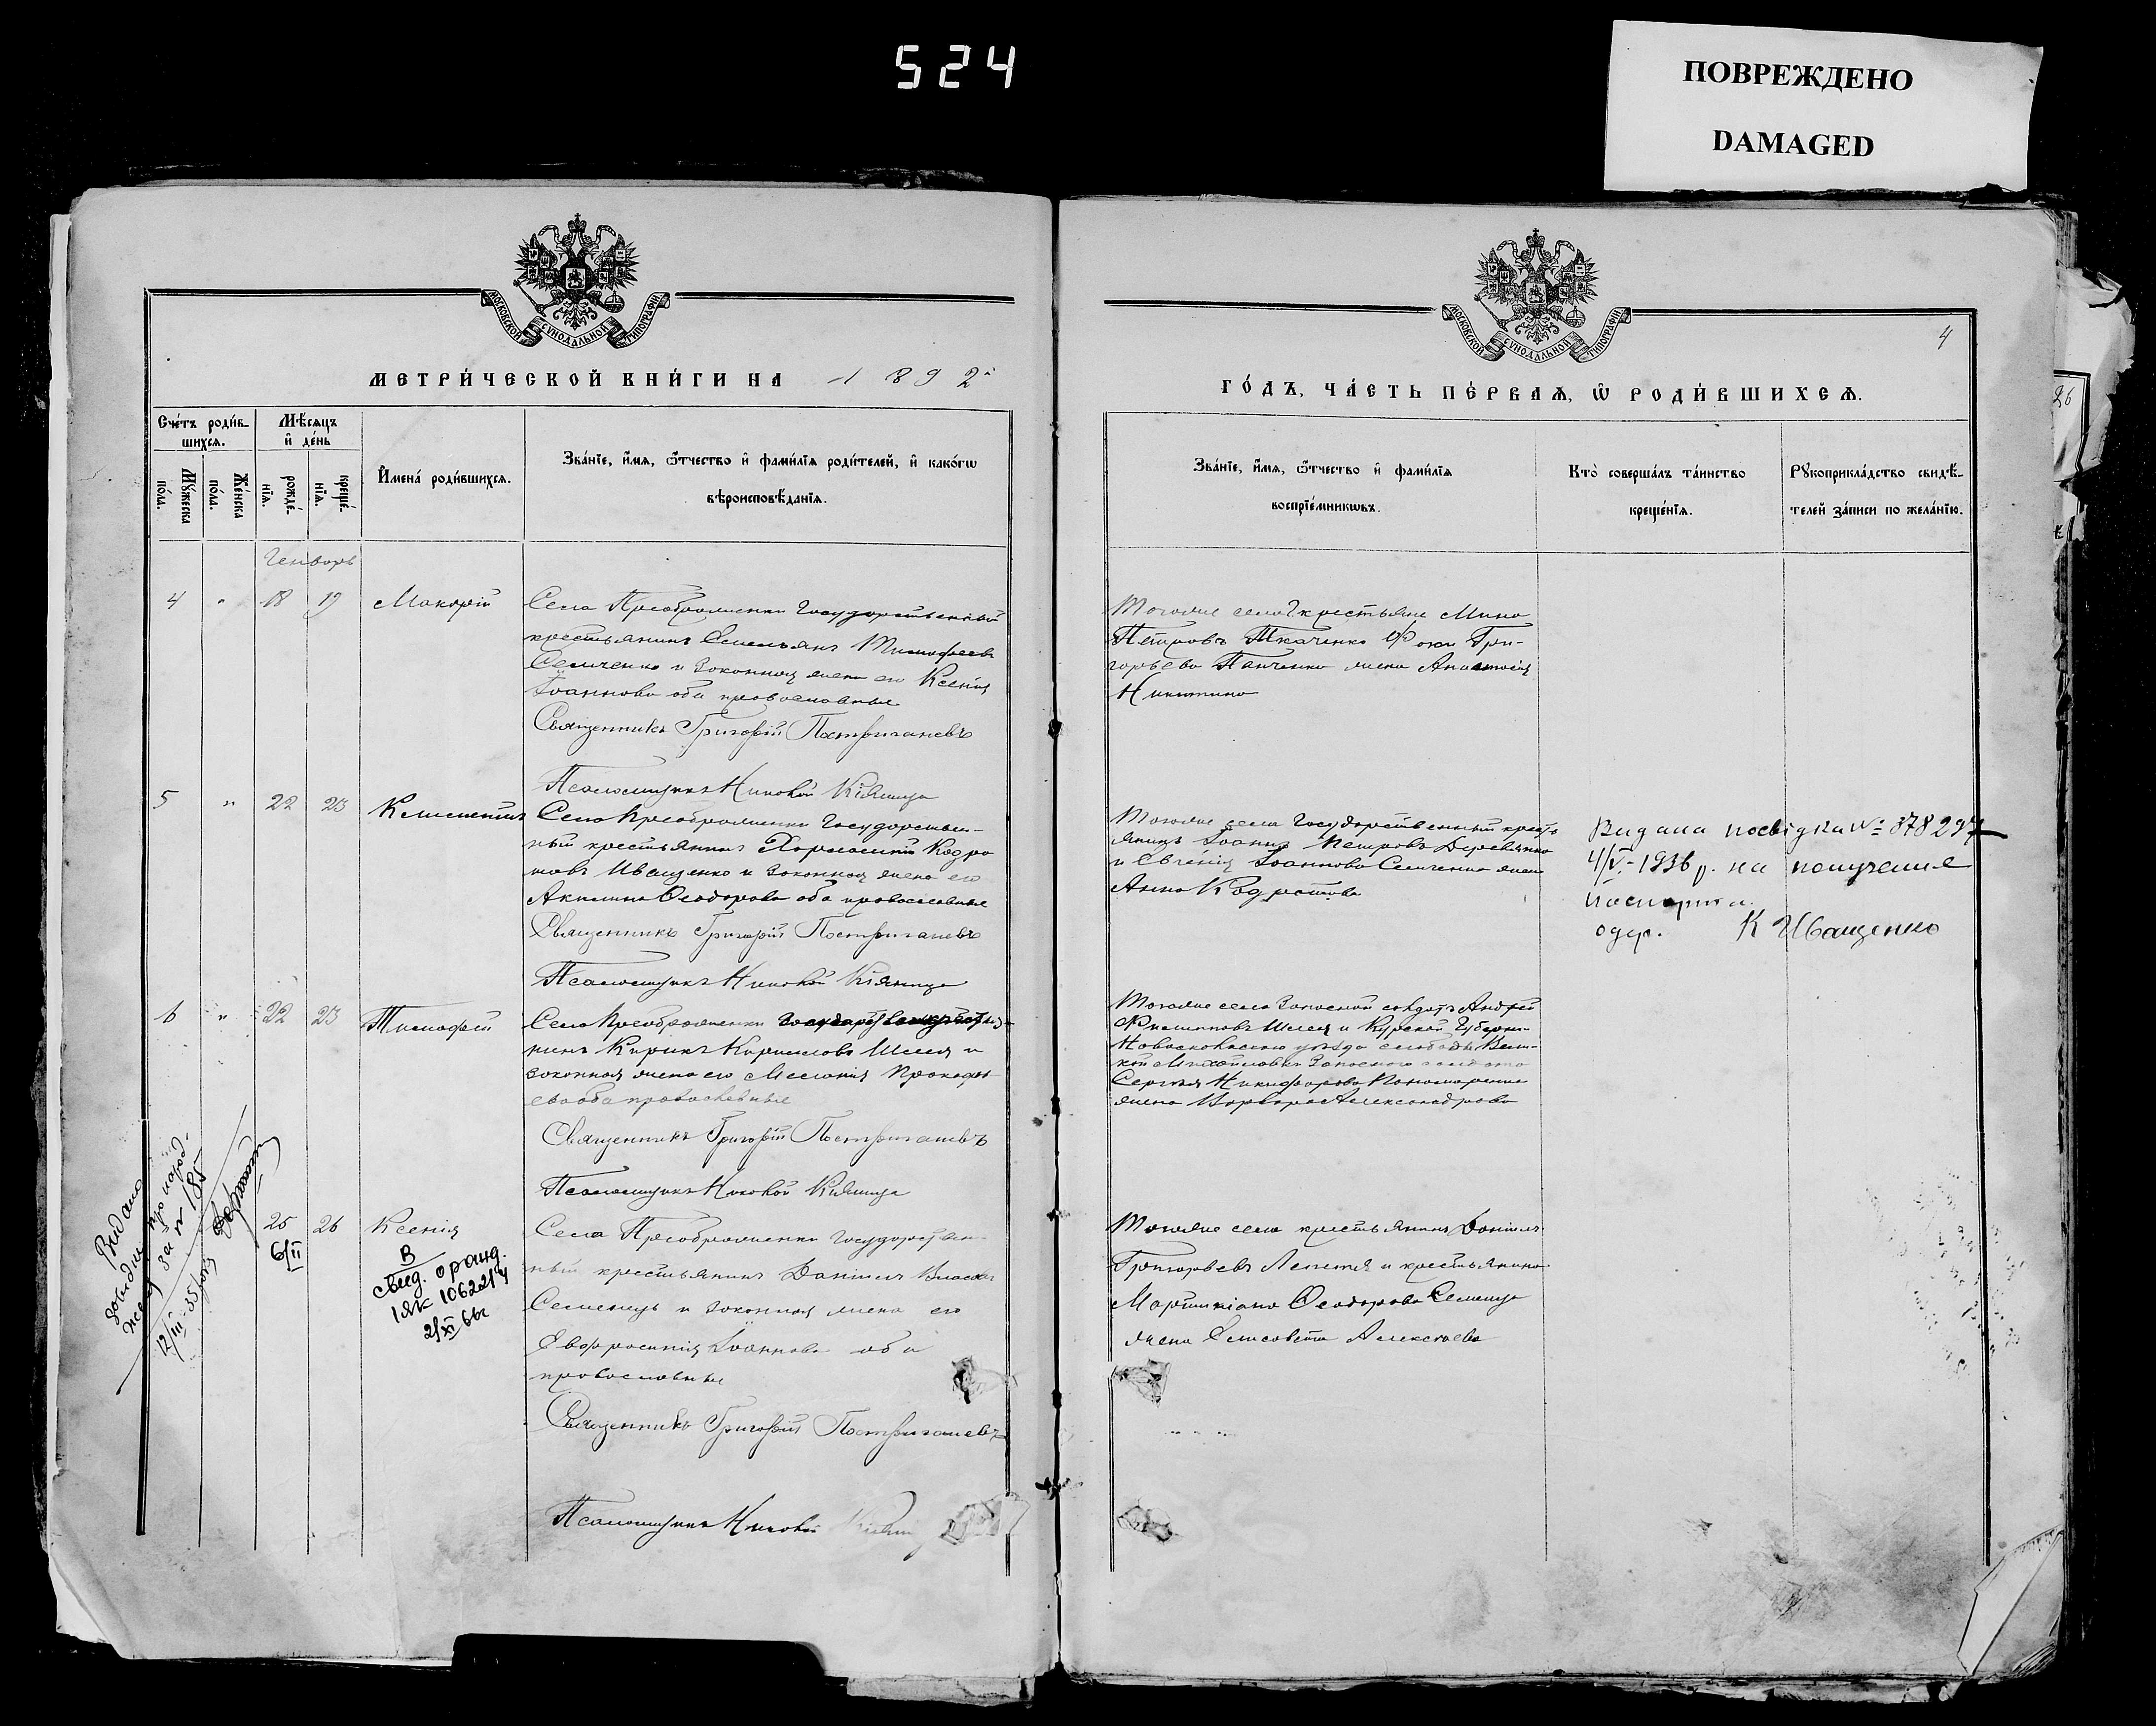 524
ПОВРЕЖДЕНО
DAMAGED
МОСКОВСКОЙ СѴНОДАЛЬНОЙ ТИПОГРАФІИ
МЕТРИ́ЧЕСКОЙ КНИ́ГИ НА 1892й
Сче́тъ роди́в-
шихсѧ.
Мѣ́сѧцъ
и҆ де́нь
Мꙋ́жеска
по́ла.
Же́нска
по́ла.
рожде́-
нїѧ.
креще́-
нїѧ.
И҆мена̀ роди́вшихсѧ.
Зва́нїе, и҆́мѧ, ѻ҆́тчество и҆ фами́лїѧ роди́телей, и҆ како́гѡ
вѣроисповѣ́данїѧ.
Генварь
4 " 18 19 Макарій
Села Преображенки Государственный
крестьянинъ Емельянъ Тимофеевъ
Семченко и законная жена его Ксенія
Іоаннова оба православные
Священникъ Григорій Пастригачевъ
Псаломщикъ Николай Кіяница
5 " 22 23 Климентій
Села Преображенки Государствен-
ный крестьянинъ Харлампій Кодра
товъ Иващенко и законная жена его
Акилина Ѳеодорова оба православные
Священникъ Григорій Пастригачевъ
Псаломщикъ Николай Кіяница
6 " 22 23 Тимофей
Села Преображенки
нинъ Кирикъ Кирилловъ Шелея и
законная жена его Меланія Прокофі-
ева оба православные
Священникъ Григорій Пастригачевъ
Псаломщикъ Николай Кіяница
25 26 Ксенія
6/II
Села Преображенки Государствен-
ный крестьянинъ Даніилъ Власовъ
Семенецъ и законная жена его
Евфросинія Іоаннова оба
православные
Священникъ Григорій Пастригачевъ
Псаломщикъ Николай
Видано
про народ-
за № 185
12/III-35 року
В
свид. о рожд.
1 ЯК 1062214
МОСКОВСКОЙ СѴНОДАЛЬНОЙ ТИПОГРАФІИ
4
ГО́ДЪ, ЧА́СТЬ ПЕ́РВАѦ, Ѡ҆ РОДИ́ВШИХСѦ.
Зва́нїе, и҆́мѧ, ѻ҆́тчество и҆ фами́лїѧ
воспрїе́мникѡвъ.
Кто̀ соверша́лъ та́инство
креще́нїѧ.
Рꙋкоприкла́дство свидѣ́-
телей за́писи по жела́нїю.
Тогоже села крестьяне Мина
Петровъ Ткаченко Фоки Гри-
горьева Панченко жена Анастасія
Никитина
Тогоже села Государственный кресть
янинъ Іоаннъ Петровъ Деревянко
и Евгенія Іоаннова Семченко жена
Анна Кодратова
Видана посвідка № 378297
4/V-1936 р. на получение
паспорта.
одер. К Иващенко
Тогоже села Запасной солдатъ Андрей
Филипповъ Шелея и Курской Губерніи
Новооскольскаго уѣзда слободы Вели-
кой Михайловки Запаснаго солдата
Сергѣя Никифорова Пономаренко
жена Варвара Александрова
Тогоже села крестьянинъ Даніилъ
Григорьевъ Лепетя и крестьянина
Мартиніана Ѳеодорова Семенца
жена Елисавета Алексѣева
26